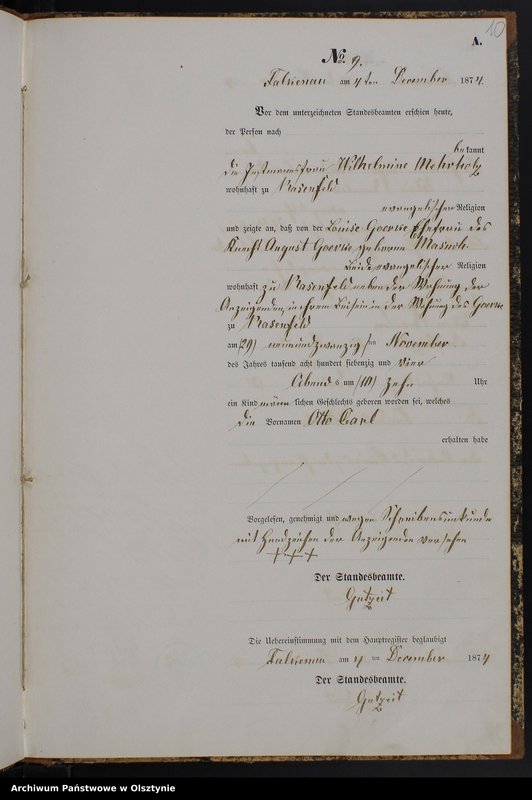 10
A.
No. 9.
Falkenau am 4 ten December 1874.
Vor dem unterzeichneten Standesbeamten erschien heute,
der Person nach
bekannt
die Instmannsfrau Wilhelmine Mehrholz
wohnhaft zu Rasenfeld
evangelischer Religion
und zeigte an, daß von der Louise Goerke Ehefrau des
Knecht August Goerke geborene
beide evangelischer Religion
wohnhaft zu Rasenfeld neben der Wohnung der
Anzeigenden, in ihrem Beisein in der Wohnung des Goerke
zu Rasenfeld
am (29) neunundzwanzigsten November
des Jahres tausend acht hundert siebenzig und vier
Abends um (10) zehn Uhr
ein Kind männlichen Geschlechts geboren worden sei, welches
die Vornamen Otto Carl
erhalten habe
Vorgelesen, genehmigt und wegen Schreibensunkunde
mit Handzeichen der Anzeigenden versehen
+++
Der Standesbeamte.
Gutzeit
Die Uebereinstimmung mit dem Hauptregister beglaubigt
Falkenau am 4 ten December 1874
Der Standesbeamte.
Gutzeit
Archiwum Państwowe w Olsztynie